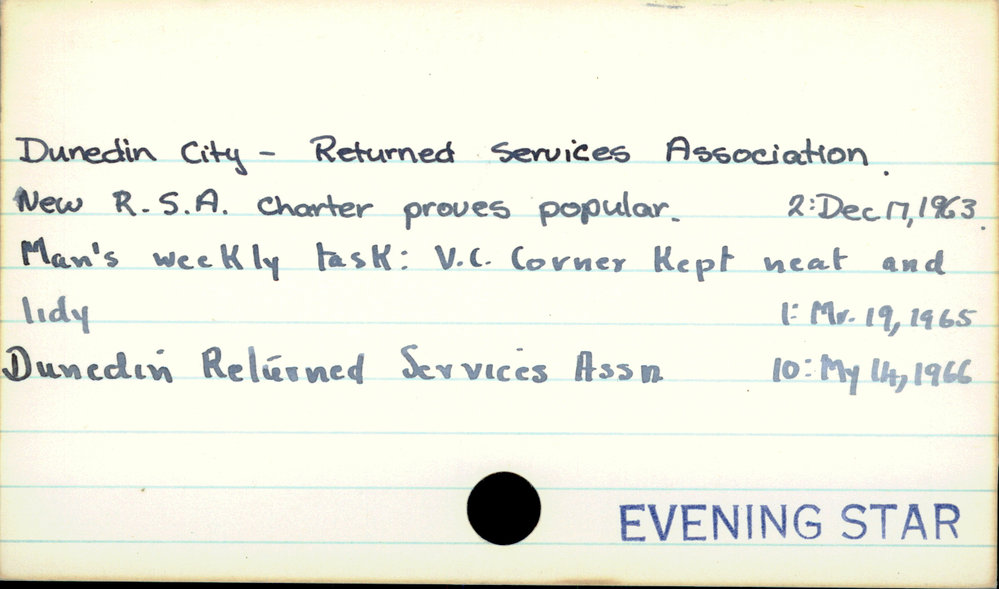 Dunedin City - Returned Services Association.
New R.S.A. Charter proves popular. 2: Dec 17, 1963.
Man's weekly task: V.C. Corner Kept neat and
tidy 1: Mr. 19, 1965
Dunedin Returned Services Assn 10: My 14, 1966
EVENING STAR